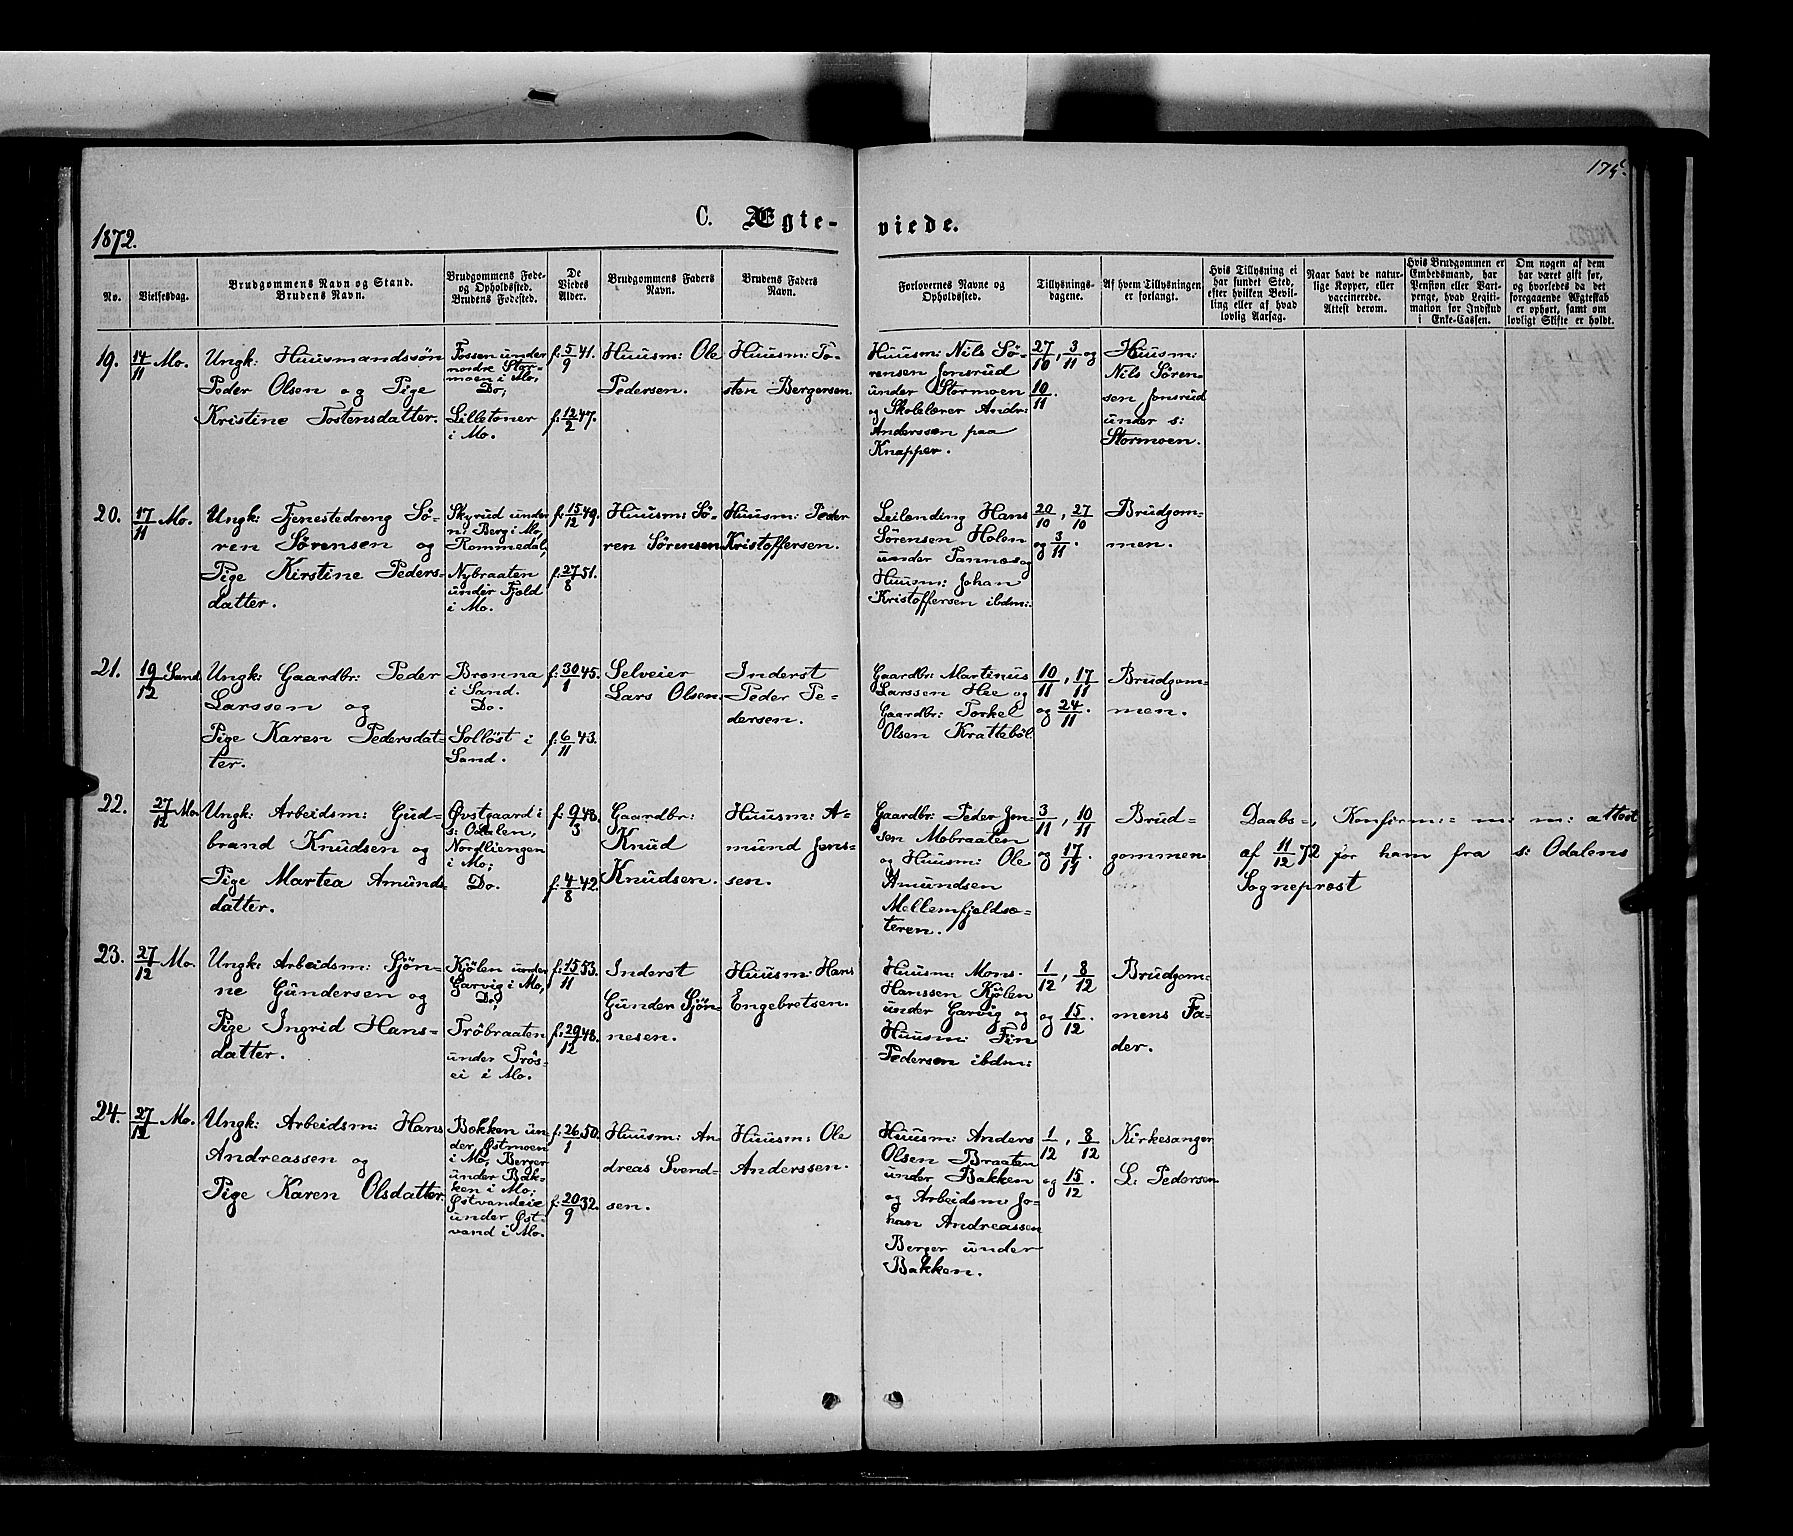 175.
1872.
C. Ægte- viede.
No.
Vielsesdag.
Brudgommens Navn og Stand.
Brudens Navn.
Brudgommens Føde-
og Opholdssted.
Brudens Fødested.
De
Viedes
Alder.
Brudgommens Faders
Navn.
Brudens Faders
Navn.
Forlovernes Navne og
Opholdssted.
Tillysnings-
dagene.
Af hvem Tillysningen
er forlangt.
Hvis Tillysning ei
har fundet Sted,
efter hvilken Bevil-
ling eller af hvad
lovlig Aarsag.
Naar havt de natur-
lige Kopper, eller
vaccinerede.
Attest derom.
Hvis Brudgommen er
Embedsmand, har
Pension eller Vart-
penge, hvad Legiti-
mation for Indskud
i Enke-Cassen.
Om nogen af dem
har været gift før,
og hvorledes da det
foregaaende Ægteskab
er ophørt, samt om
lovligt Skifte er holdt.
19.
14/11 Mo.
Ungk: Huusmandssøn
Peder Olsen og Pige
Kristine Tostensdatter.
Fossen under
nordre Stor-
moen i Mo,
Do;
Lilletoner
i Mo.
f: 5/9 41.
f: 12/2 47.
Huusm: Ole
Pedersen.
Huusm: To-
sten Bergersen.
Huusm: Nils Sö-
rensen Jonsrud
under Stormoen
og Skolelærer Andr:
Anderssen paa
Knapper.
27/10, 3/11 og
10/11.
Huusm:
Nils Sören-
sen Jonsrud
under s:
Stormoen.
20.
17/11 Mo.
Ungk: Tjenestedreng Sö-
ren Sörensen og
Pige Kirstine Peders-
datter.
Skyrud under
n: Berg i Mo,
Rommedal;
Nybraaten
under Fjeld
i Mo.
f: 15/12 49.
f: 27/8 51.
Huusm: Sö-
ren Sörensen.
Huusm: Peder
Kristoffersen.
Leilending Hans
Sörensen Holen
under Tannes og
Huusm: Johan
Kristoffersen ibdm:
20/10, 27/10
og 3/11.
Brudgom-
men.
21.
19/12 Sand
Ungk: Gaardbr: Peder
Larssen og
Pige Karen Pedersdat-
ter.
Brenna
i Sand.
Do.
Solløst i
Sand.
f: 30/1 45.
f: 6/11 43.
Selveier
Lars Olsen.
Inderst
Peder Pe-
dersen.
Gaardbr: Martinus
Larssen Hee og
Gaardbr: Torkel
Olsen Krattebøl
10/11, 17/11
og 24/11.
Brudgom-
men.
22.
27/12 Mo.
Ungk: Arbeidsm: Gud-
brand Knudsen og
Pige Martea Amunds-
datter.
Østgaard i
s: Odalen,
Nordliengen
i Mo;
Do.
f: 9/3 48.
f: 4/8 42.
Gaardbr:
Knud
Knudsen.
Huusm: A-
mund Jens-
sen.
Gaardbr: Peder Jon-
sen Mobraaten
og Huusm: Ole
Amundsen
Mellemfjeldsæ-
teren.
3/11, 10/11
og 17/11.
Brud-
gommen
Daabs-, Konfirm:- m: m: attest
af 11/12 72 for ham fra s: Odalens
Sogneprest
23.
27/12 Mo.
Ungk: Arbeidsm: Sjön-
ne Gundersen og
Pige Ingrid Hans-
datter.
Kjølen under
Garvig i Mo,
Do;
Tröbraaten
under Trös-
ei i Mo.
f: 15/11 53.
f: 29/12 48.
Inderst
Gunder Sjön-
nesen.
Huusm: Hans
Engebretsen.
Huusm: Mons
Hanssen Kjølen
under Garvig og
Huusm: Fin
Pedersen ibdm:
1/12, 8/12
og 15/12.
Brudgom-
mens Fa-
der.
24.
27/12 Mo.
Ungk: Arbeidsm: Hans
Andreassen og
Pige Karen Olsdatter.
Bakken un-
der Østmoen
i Mo, Berger
under Bak-
ken i Mo;
Østvandeie
under Øst-
vand i Mo.
f: 26/1 50.
f: 20/9 32.
Huusm: An-
dreas Svend-
sen.
Huusm: Ole
Anderssen.
Huusm: Anders
Olsen Braaten
under Bakken
og Arbeidsm: Jo-
han Andreassen
Berger under
Bakken.
1/12, 8/12
og 15/12.
Kirkesanger
L: Pedersen